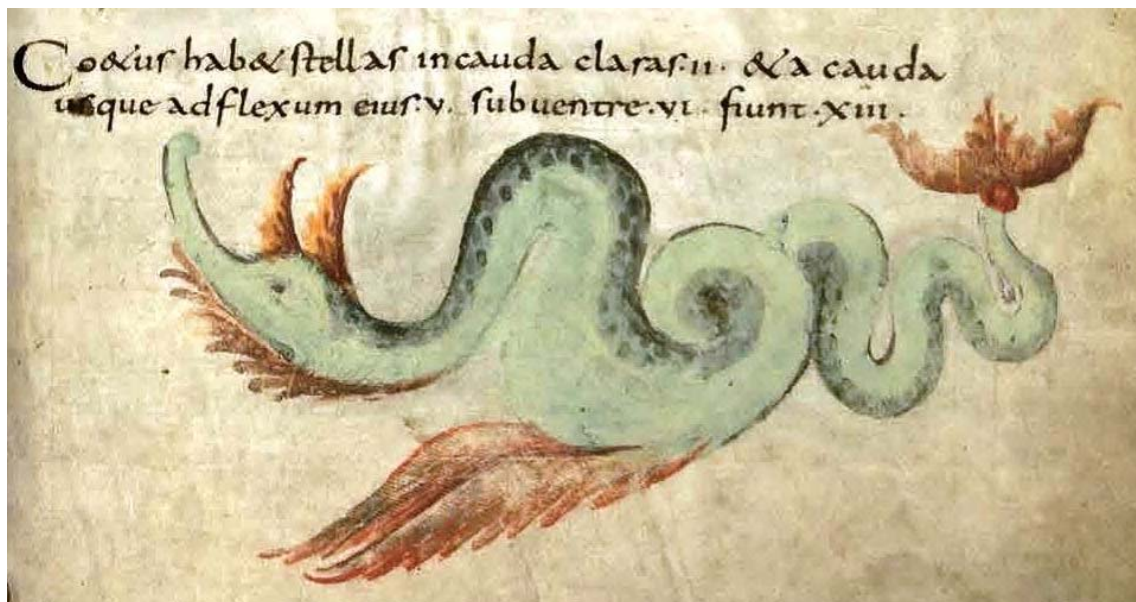 Co&us hab& stellas incauda claras·ii· & a cauda
usque adflexum eius·v· subuentre·vi· fiunt·xiii·